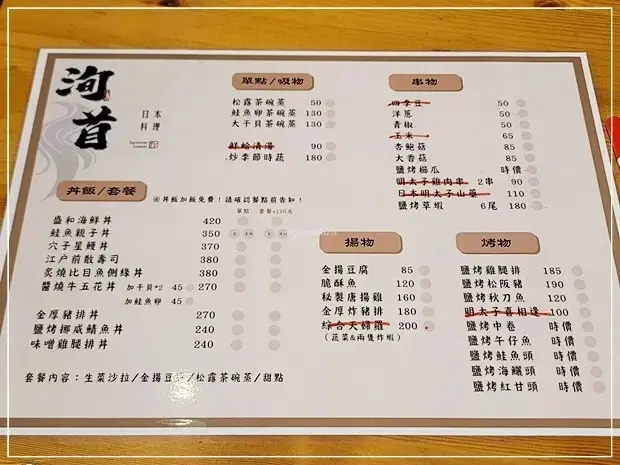 洵昔
日本
料理
單點/吸物
松露茶碗蒸 50
鮭魚卵茶碗蒸 130
大干貝茶碗蒸 130
鮮蛤清湯 90
炒季節時蔬 180
串物
四季豆 50
洋蔥 50
青椒 50
玉米 65
杏鮑菇 85
大香菇 85
鹽烤櫛瓜 時價
明太子雞肉串 2串 90
日本明太子山藥 110
鹽烤草蝦 6尾 180
丼飯/套餐
※丼飯加飯免費!請確認餐點前告知!
單點 套餐+120元
盛和海鮮丼 420
鮭魚親子丼 350
穴子星鰻丼 370
江戶前散壽司 380
炙燒比目魚側緣丼 380
醬燒牛五花丼 加干貝*2 45 270
加鮭魚卵 45
金厚豬排丼 270
鹽烤挪威鯖魚丼 240
味噌雞腿排丼 240
套餐內容:生菜沙拉/金揚豆腐/松露茶碗蒸/甜點
揚物
金揚豆腐 85
脆酥魚 120
秘製唐揚雞 160
金厚炸豬排 180
綜合天婦羅 200
(蔬菜&兩隻炸蝦)
烤物
鹽烤雞腿排 185
鹽烤松阪豬 190
鹽烤秋刀魚 120
明太子喜相逢 100
鹽烤中卷 時價
鹽烤午仔魚 時價
鹽烤鮭魚頭 時價
鹽烤海鱺頭 時價
鹽烤紅甘頭 時價